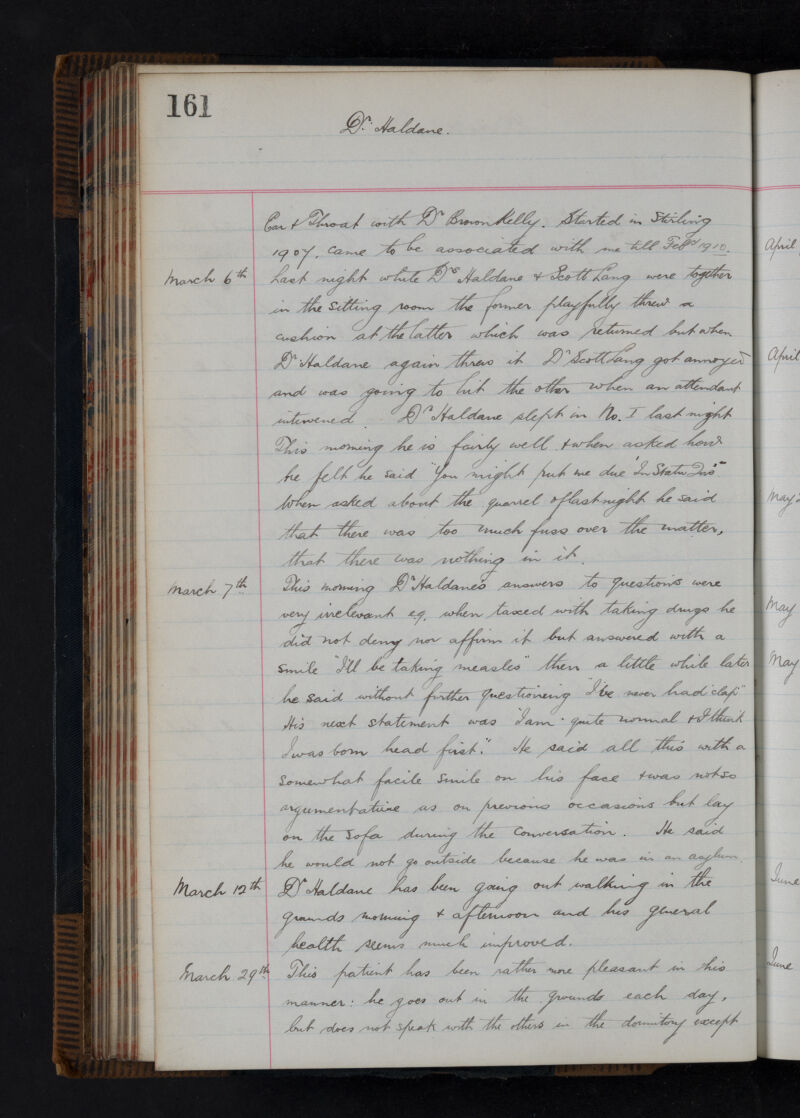 161
Dr. Haldane.
Ear & Throat with Dr Brown Kelly. Started in Stirling
1907. came to be associated with me till Feby 1910.
April
March 6th Last night while Drs Haldane & Scott Lang were together
in the sitting room the former playfully threw a
cushion at the latter which was returned but when
Dr Haldane again threw it Dr Scott Lang got annoyed
April
and was going to hit the other when an attendant
intervened. Dr Haldane slept in No. I last night
This morning he is fairly well & when asked how
he felt he said "You might put me due 'In Statu Quo'"
When asked about the quarrel of last night he said
May
that there was too much fuss over the matter,
that there was nothing in it.
March 7th This morning Dr Haldane's answers to questions were
very irrelevant eg. when taxed with taking drugs he
May
did not deny nor affirm it but answered with a
smile "I'll be taking measles" then a little while later
May
he said without further questioning "I've never had 'clap'"
His next statement was "I am quite normal & I think
I was born head first." He said all this with a
somewhat facile smile on his face & was not so
argumentative as on previous occasions but lay
on the sofa during the conversation. He said
he would not go outside because he was in an asylum.
June
March 12th Dr Haldane has been going out walking in the
grounds morning & afternoon and his general
health seems much improved.
June
March 29th This patient has been rather more pleasant in his
manner: he goes out in the grounds each day,
but does not speak with the others in the dormitory except